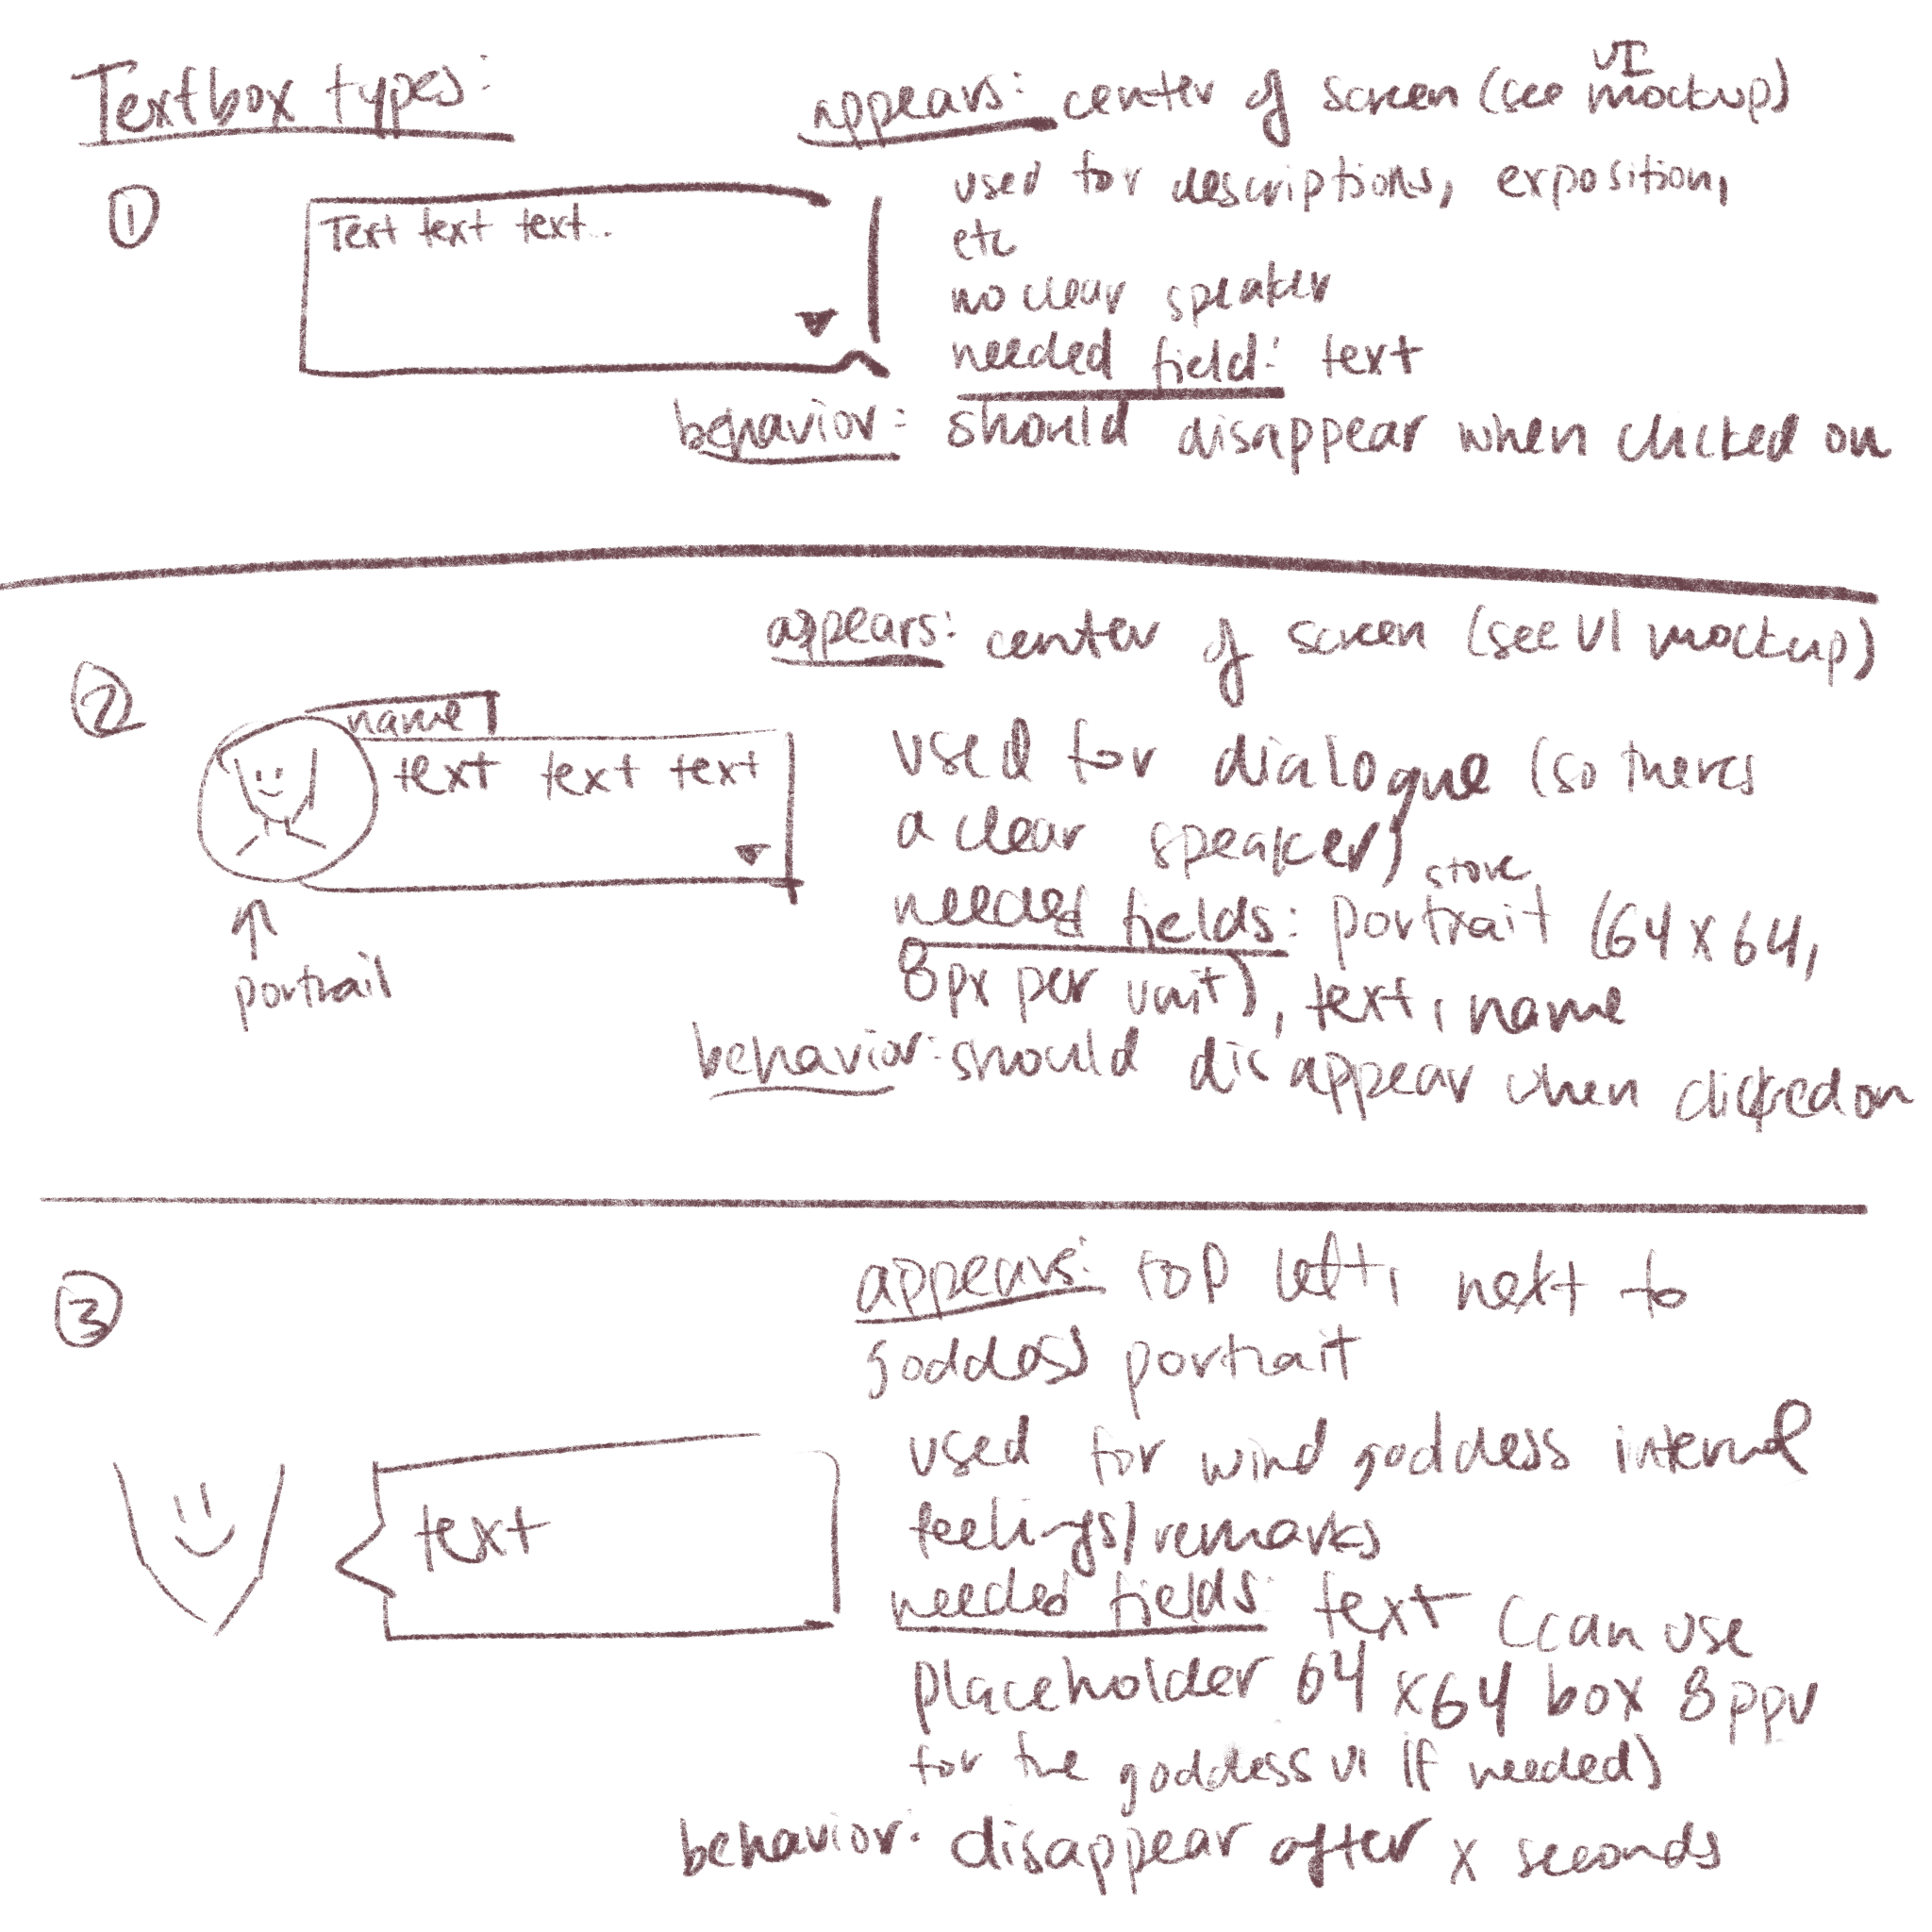 Textbox types:
①
Text text text...
appears: center of screen (see UI mockup)
used for descriptions, exposition,
etc
no clear speaker
needed field: text
behavior: should disappear when clicked on
②
name
text text text
portrait
appears: center of screen (see UI mockup)
used for dialogue (so theres
a clear speaker)
store
needed fields: portrait (64x64,
8px per unit), text, name
behavior: should disappear when clicked on
③
text
appears: top left, next to
goddess portrait
used for wind goddess internal
feelings/remarks
needed fields: text (can use
placeholder 64x64 box 8ppu
for the goddess UI if needed)
behavior: disappear after x seconds